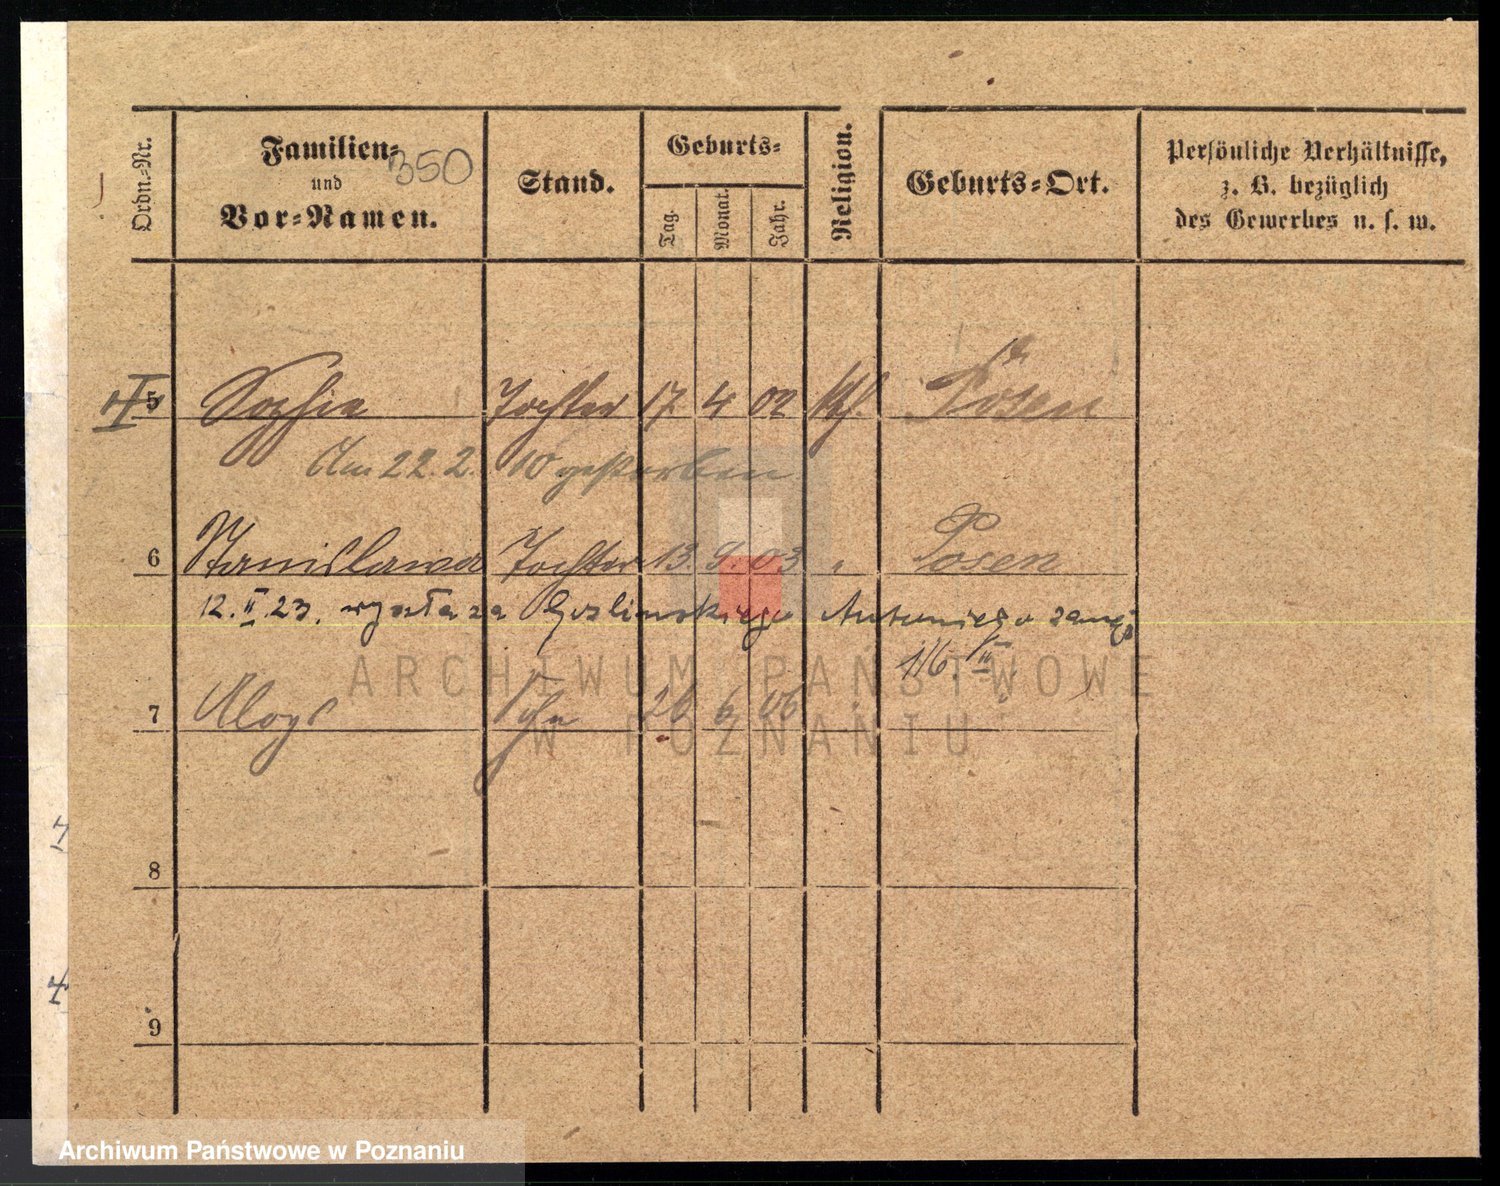 Ordn.-Nr.
Familien-
und
Vor-Namen.
350
Stand.
Geburts-
Tag.
Monat.
Jahr.
Religion.
Geburts-Ort.
Persönliche Verhältnisse,
z. B. bezüglich
des Gewerbes u. s. w.
5 Sophie Tochter 17. 4 02 kth. Posen
Am 22.2. 10 gestorben
6 Stanislawa Tochter 13. 9. 03 " Posen
12. II. 23. wyszła za Goslinskiego Antoniego zamąż
116.
7 Aloys Sohn 26 6 06
8
9
ARCHIWUM PAŃSTWOWE
W POZNANIU
Archiwum Państwowe w Poznaniu